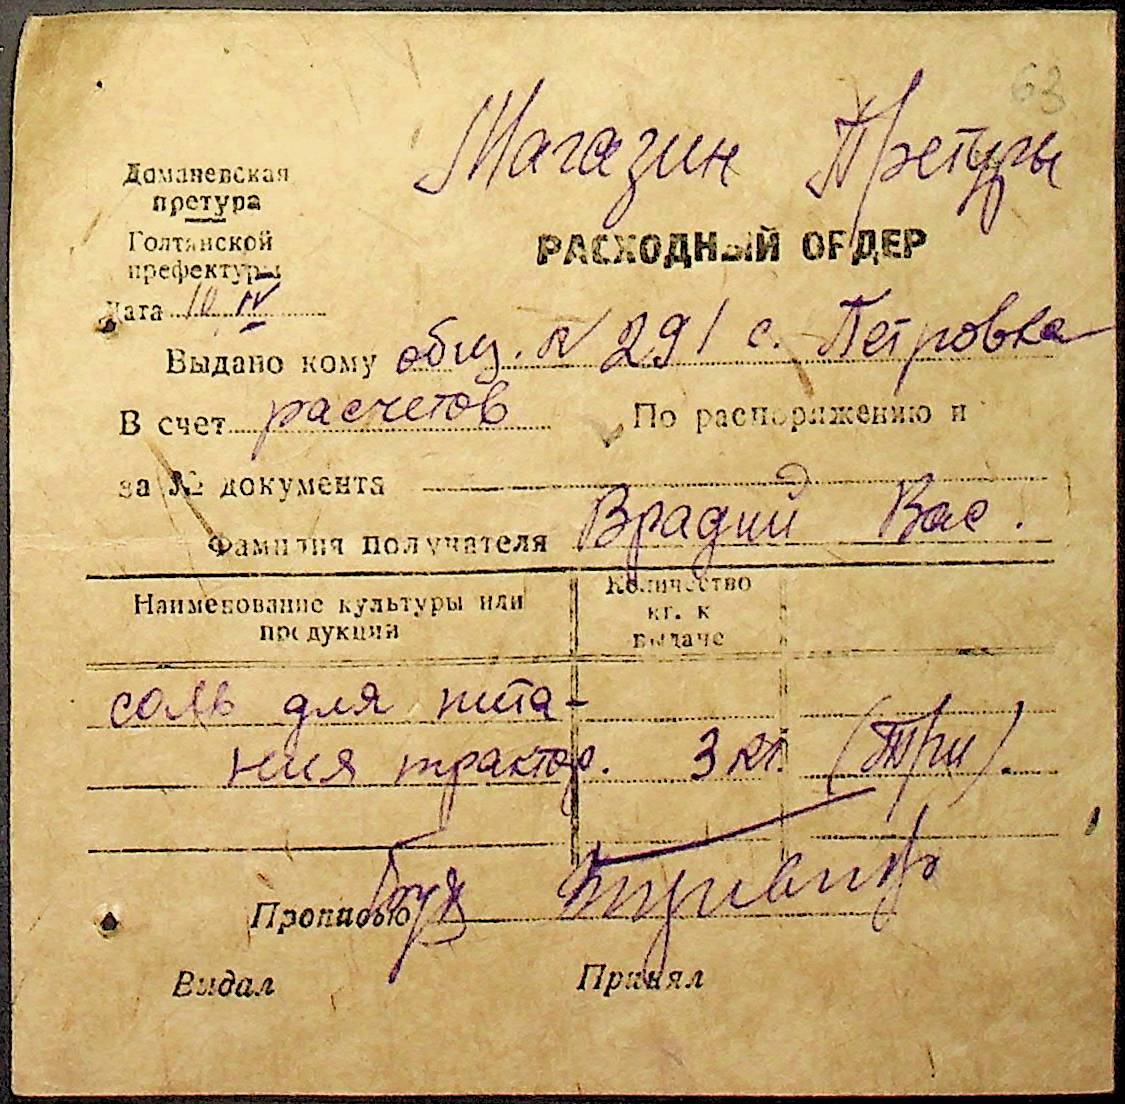 63
Магазин Претуры
Доманевская
претура
Голтянской
префектуры
РАСХОДНЫЙ ОРДЕР
Дата 10 IV
Выдано кому общ. N 291 с. Петровка
В счет расчетов По распоряжению и
за № документа
Фамилия получателя Врадий Вас.
Наименование культуры или
продукции
Количество
кг. к
выдаче
соль для пита-
ния трактор. 3 кг. (Три).
Прописью
Выдал Принял